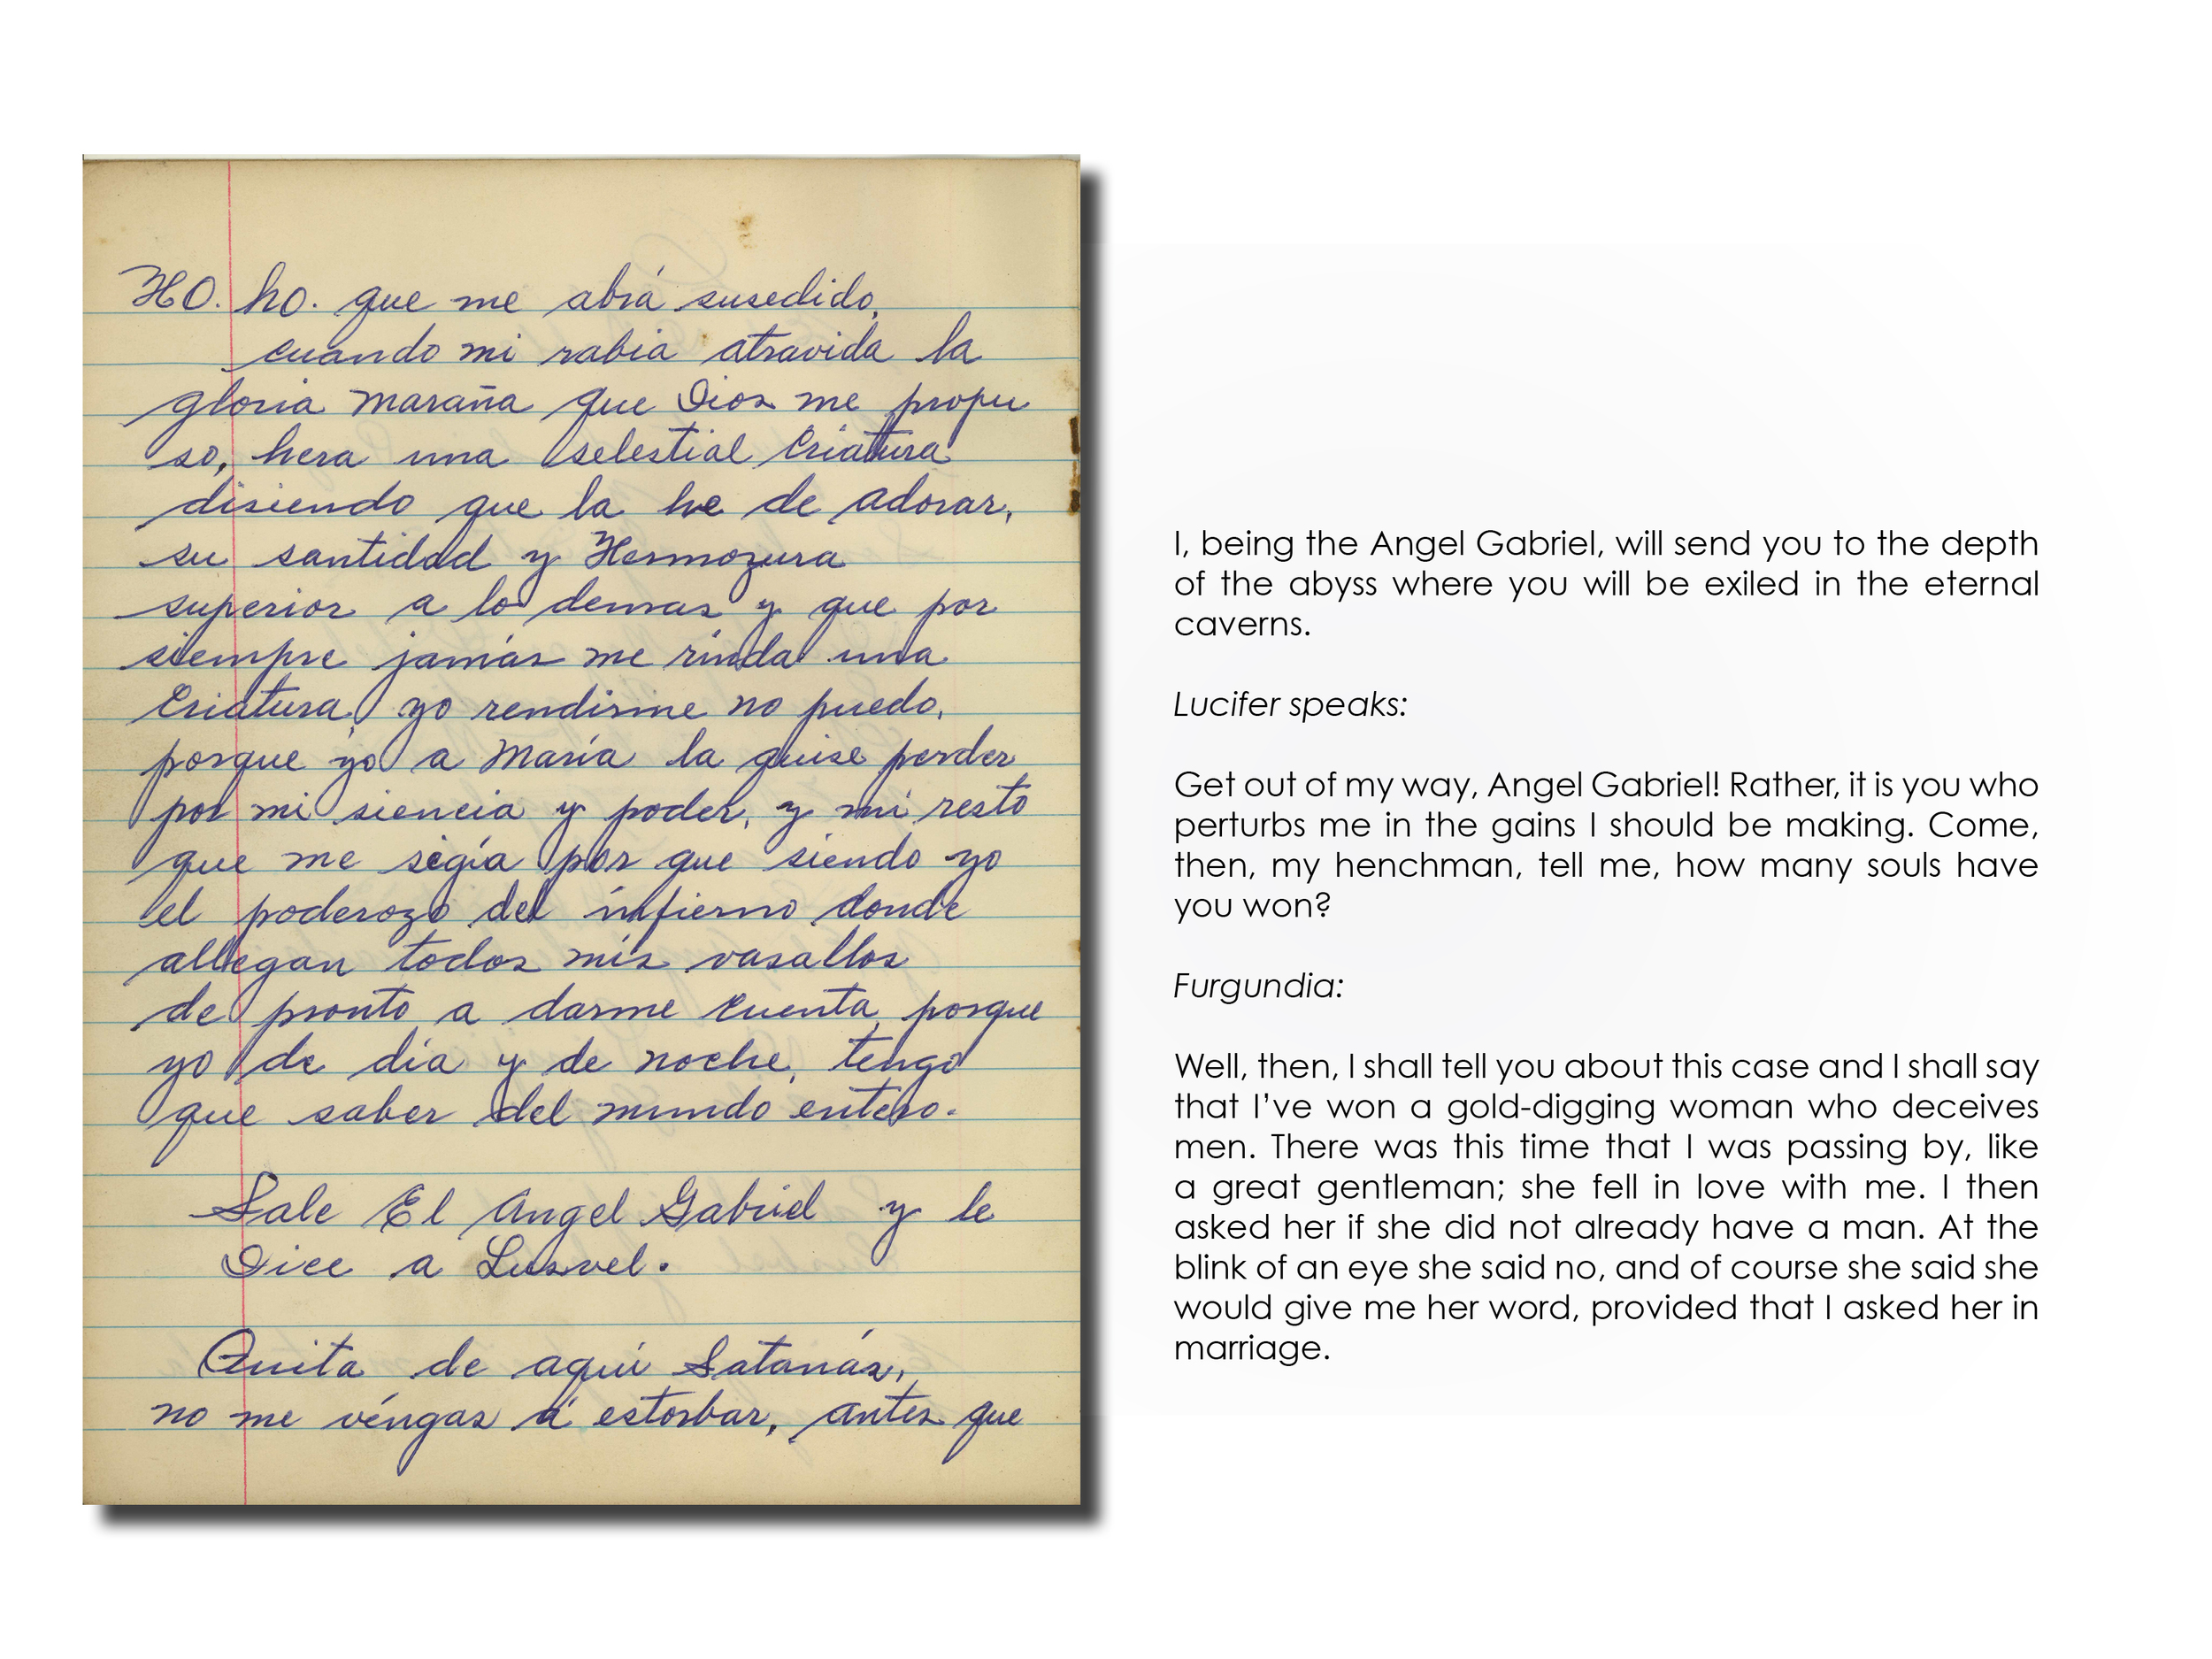 HO. ho. que me abrá susedido,
cuando mi rabia atravida la
gloria maraña que Dios me propu
so, hera una selestial criatura
disiendo que la he de adorar,
su santidad y Hermozura
superior a lo demas y que por
siempre jamás me rinda una
criatura, yo rendirme no puedo,
porque yo a María la quise perder
por mi siencia y poder, y mi resto
que me segía por que siendo yo
el poderozo del infierno donde
allegan todos mis vasallos
de pronto a darme cuenta, porque
yo de día y de noche, tengo
que saber del mundo entero.
Sale El Angel Gabriel y le
Dice a Lusvel.
Quita de aquí Satanás,
no me véngas á estorbar, antes que
I, being the Angel Gabriel, will send you to the depth
of the abyss where you will be exiled in the eternal
caverns.
Lucifer speaks:
Get out of my way, Angel Gabriel! Rather, it is you who
perturbs me in the gains I should be making. Come,
then, my henchman, tell me, how many souls have
you won?
Furgundia:
Well, then, I shall tell you about this case and I shall say
that I’ve won a gold-digging woman who deceives
men. There was this time that I was passing by, like
a great gentleman; she fell in love with me. I then
asked her if she did not already have a man. At the
blink of an eye she said no, and of course she said she
would give me her word, provided that I asked her in
marriage.